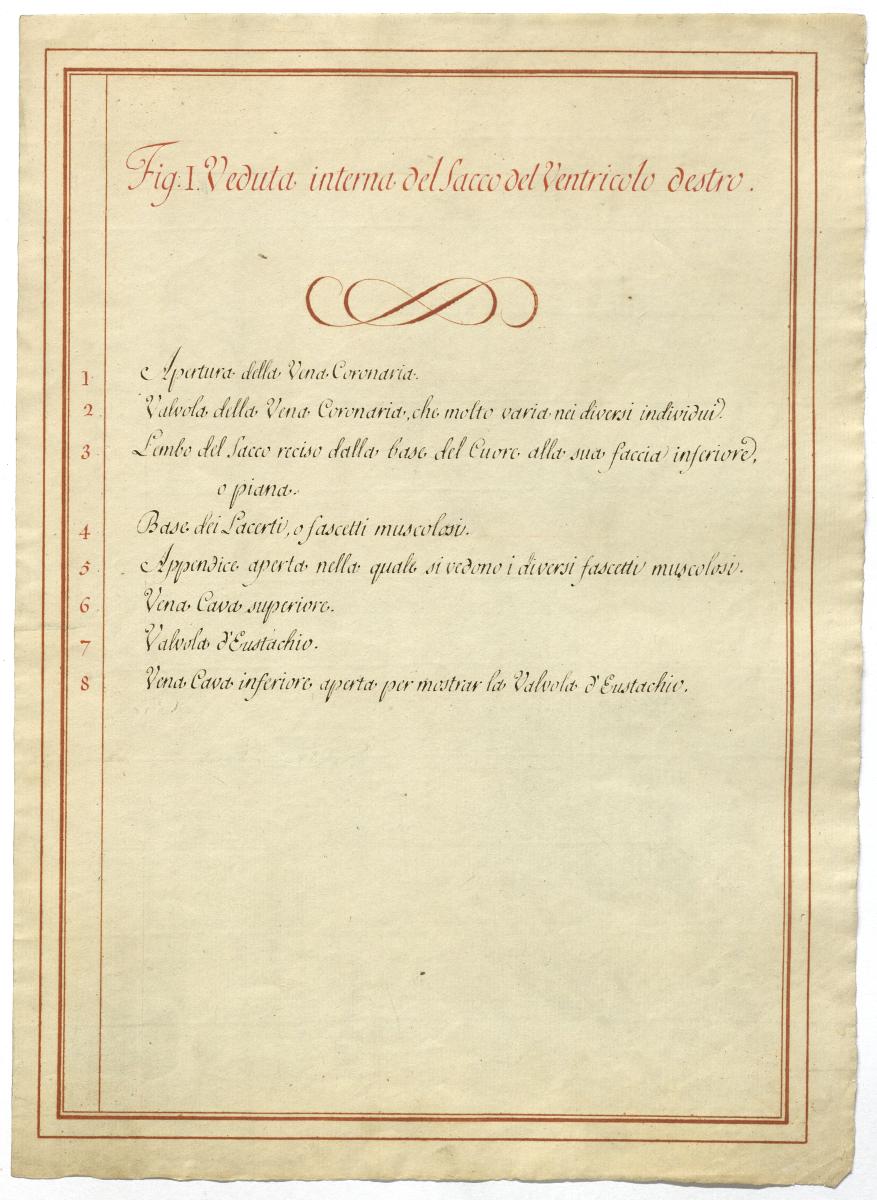 Fig: I. Veduta interna del Sacco del Ventricolo destro.
1 Apertura della Vena Coronaria.
2 Valvola della Vena Coronaria, che molto varia nei diversi individui.
3 Lembo del Sacco reciso dalla base del Cuore alla sua faccia inferiore,
o piana.
4 Base dei Lacerti, o fascetti muscolosi.
5 Appendice aperta nella quale si vedono i diversi fascetti muscolosi.
6 Vena Cava superiore.
7 Valvola d'Eustachio.
8 Vena Cava inferiore aperta per mostrar la Valvola d'Eustachio.